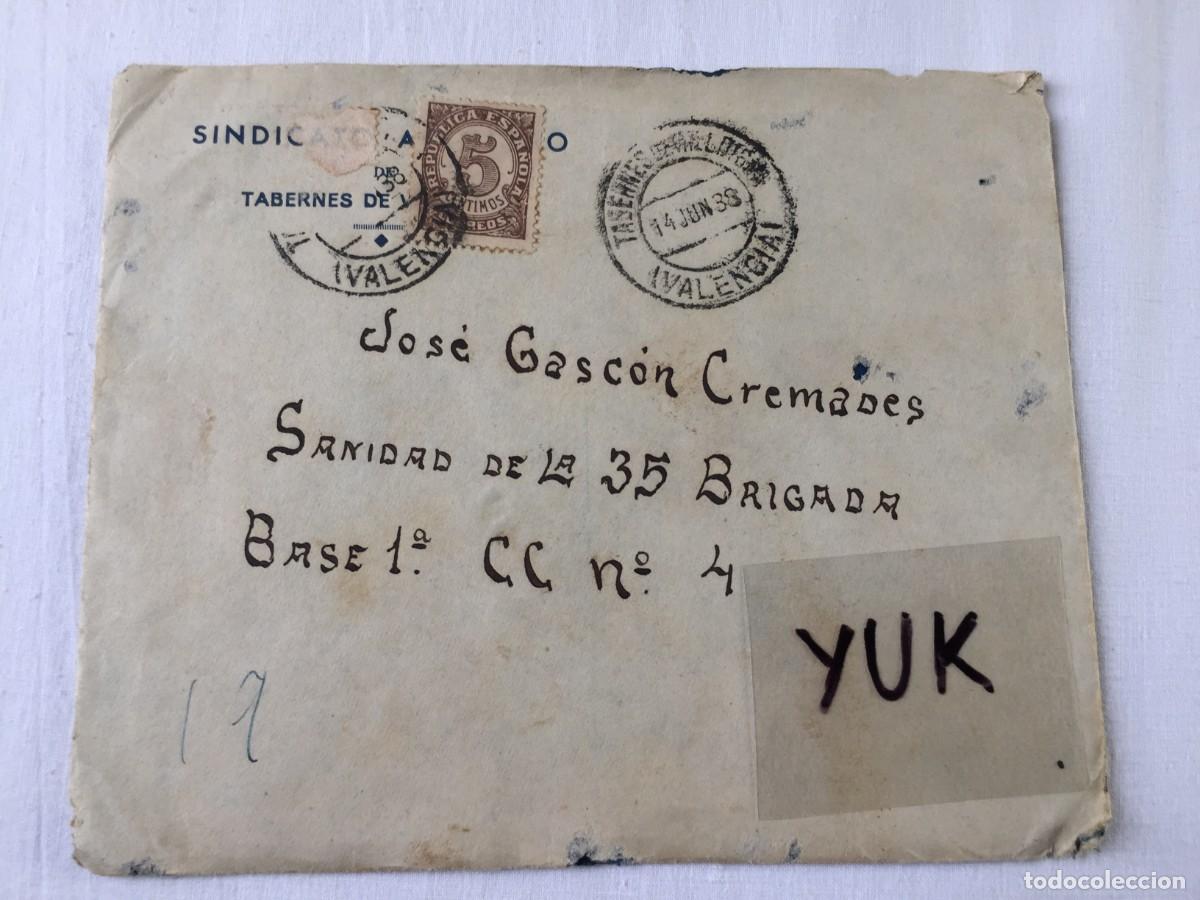 SINDICATO A O
DE
TABERNES DE V
REPÚBLICA ESPAÑOLA
5
CÉNTIMOS
CORREOS
38
(VALENCIA)
TABERNES DE VALLDIGNA
14 JUN 38
(VALENCIA)
José Gascón Cremades
SANIDAD DE LA 35 BRIGADA
BASE 1ª. CC nº 4
YUK
17
todocoleccion